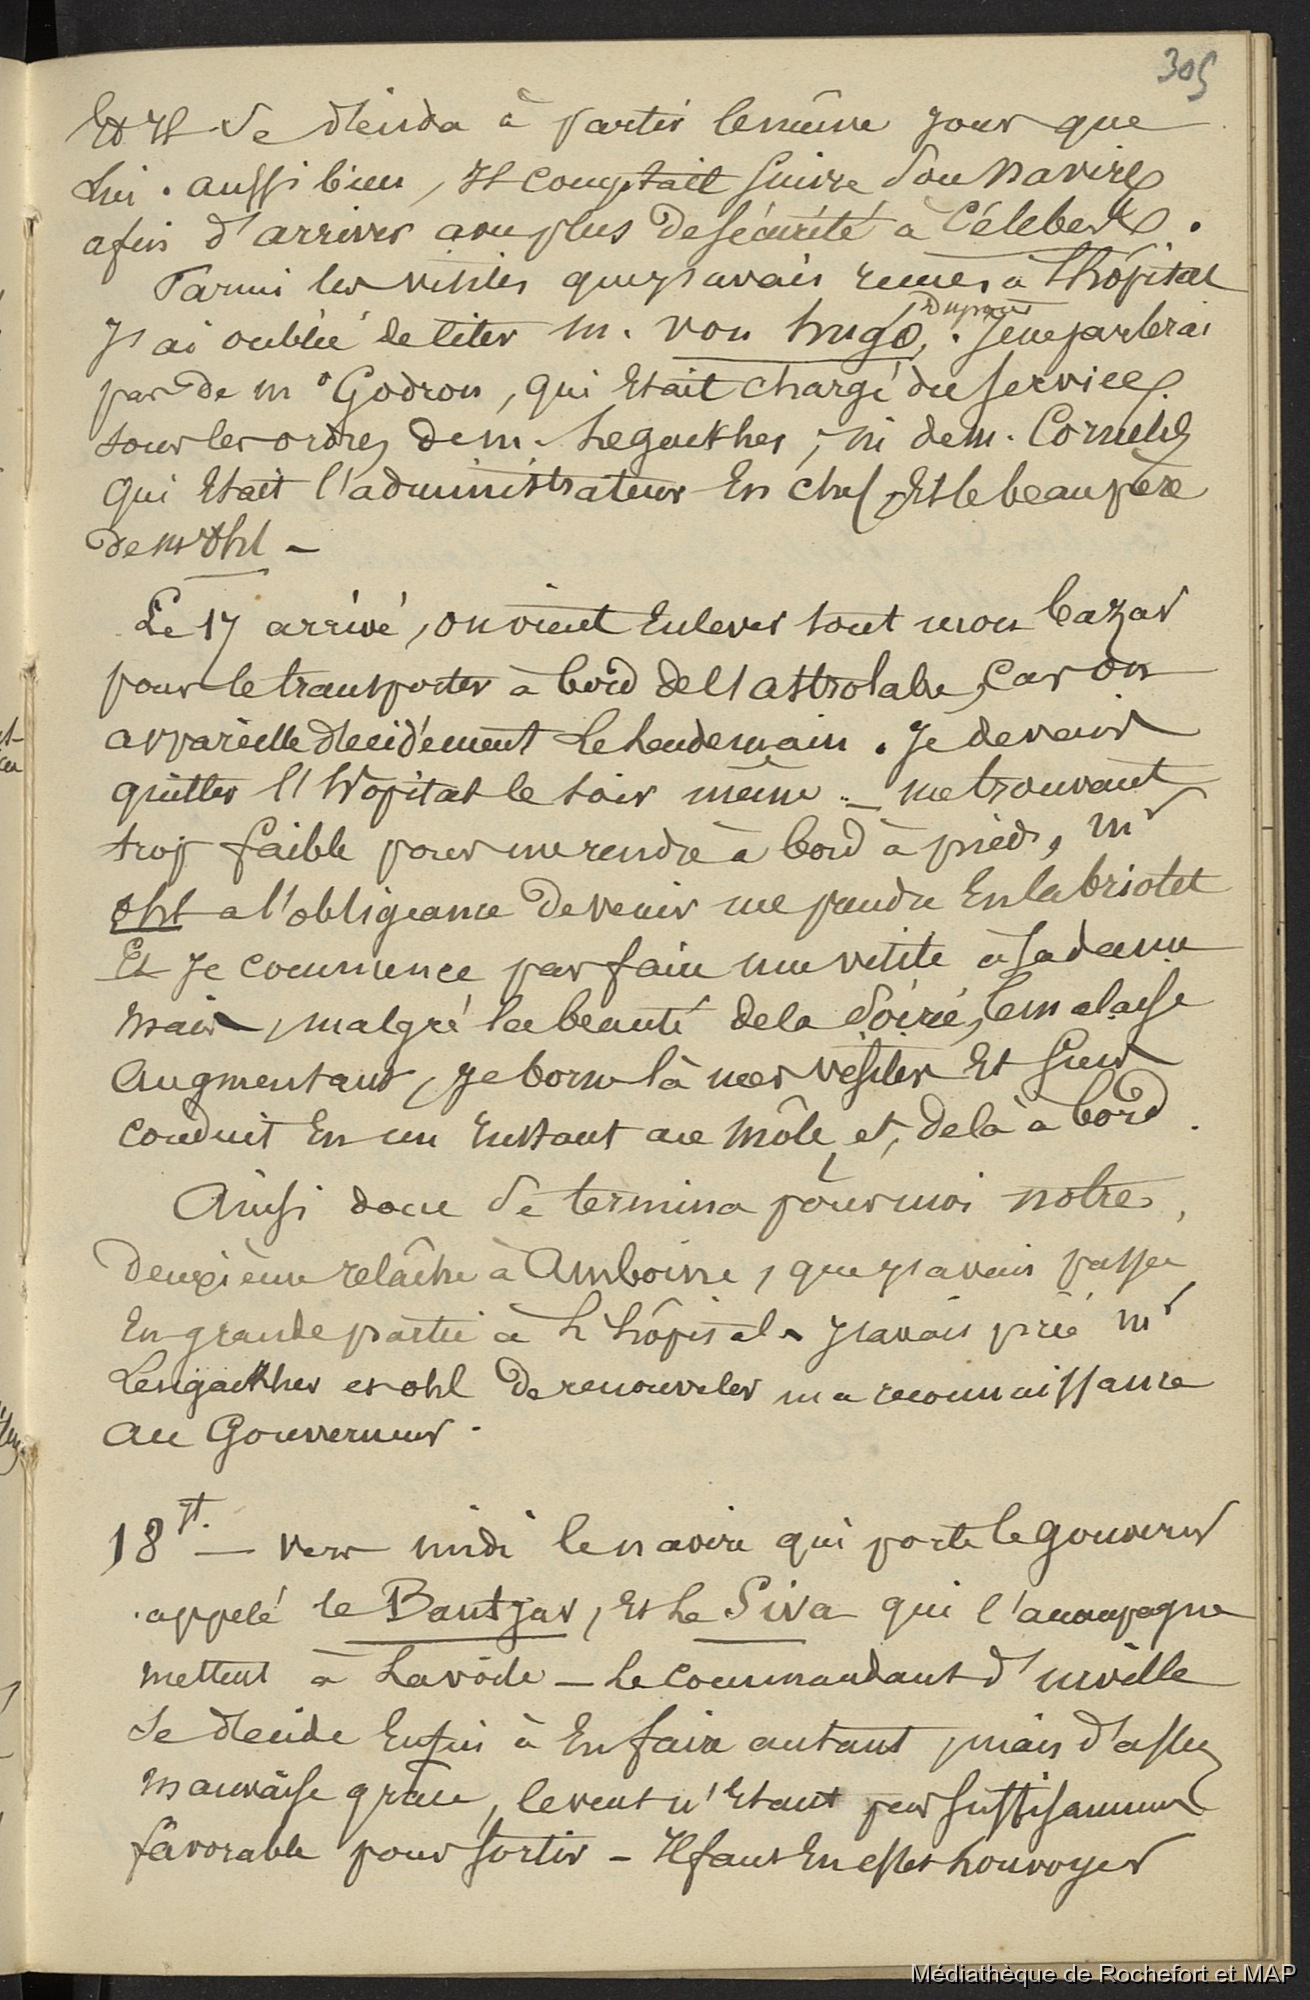 305
Et Il se décida à partir le même jour que
lui. aussi bien, Il comptait suivre son navire
afin d'arriver avec plus de sécurité à Célebes.
Parmi les visites que j'avais reçues à l'hôpital
J'ai oublié de citer m. von hugo, . Je ne parlerai
pas de mr Godron, qui Etait chargé du service
sous les ordres de m. Legackher, ni de m. Cornelis
qui Etait l'administrateur En chef, Et le beau père
de mr Ohl -
Le 17 arrivé, on vient Enlever tout mon bazar
pour le transporter à bord de l'astrolabe, car on
appareille décidément Le Lendemain. Je devais
quitter l'hôpital le soir même - me trouvant
trop faible pour me rendre à bord à pied, mr
Ohl a l'obligeance de venir me prendre En cabriolet
Et Je commence par faire une visite à sa dame
mais, malgré la beauté de la soirée, le malaise
augmentant, Je borne là mes visites Et suis
conduit En un Instant au môle, et, de là à bord.
Ainsi donc se termina pour moi notre
deuxième relâche à Amboine, que j'avais passée
En grande partie à L'hôpital. J'avais prié mr
Lengackher et Ohl de renouveler ma reconnaissance
au Gouverneur.
18 - vers midi le navire qui porte le gouverneur
appelé le Bantjar, Et Le Siva qui l'accompagne
mettent à La voile - Le commandant d'urville
se décide Enfin à En faire autant, mais d'assez
mauvaise grâce, le vent n'Etant pas suffisamment
favorable pour sortir - Il faut En effet louvoyer
Médiathèque de Rochefort et MAP